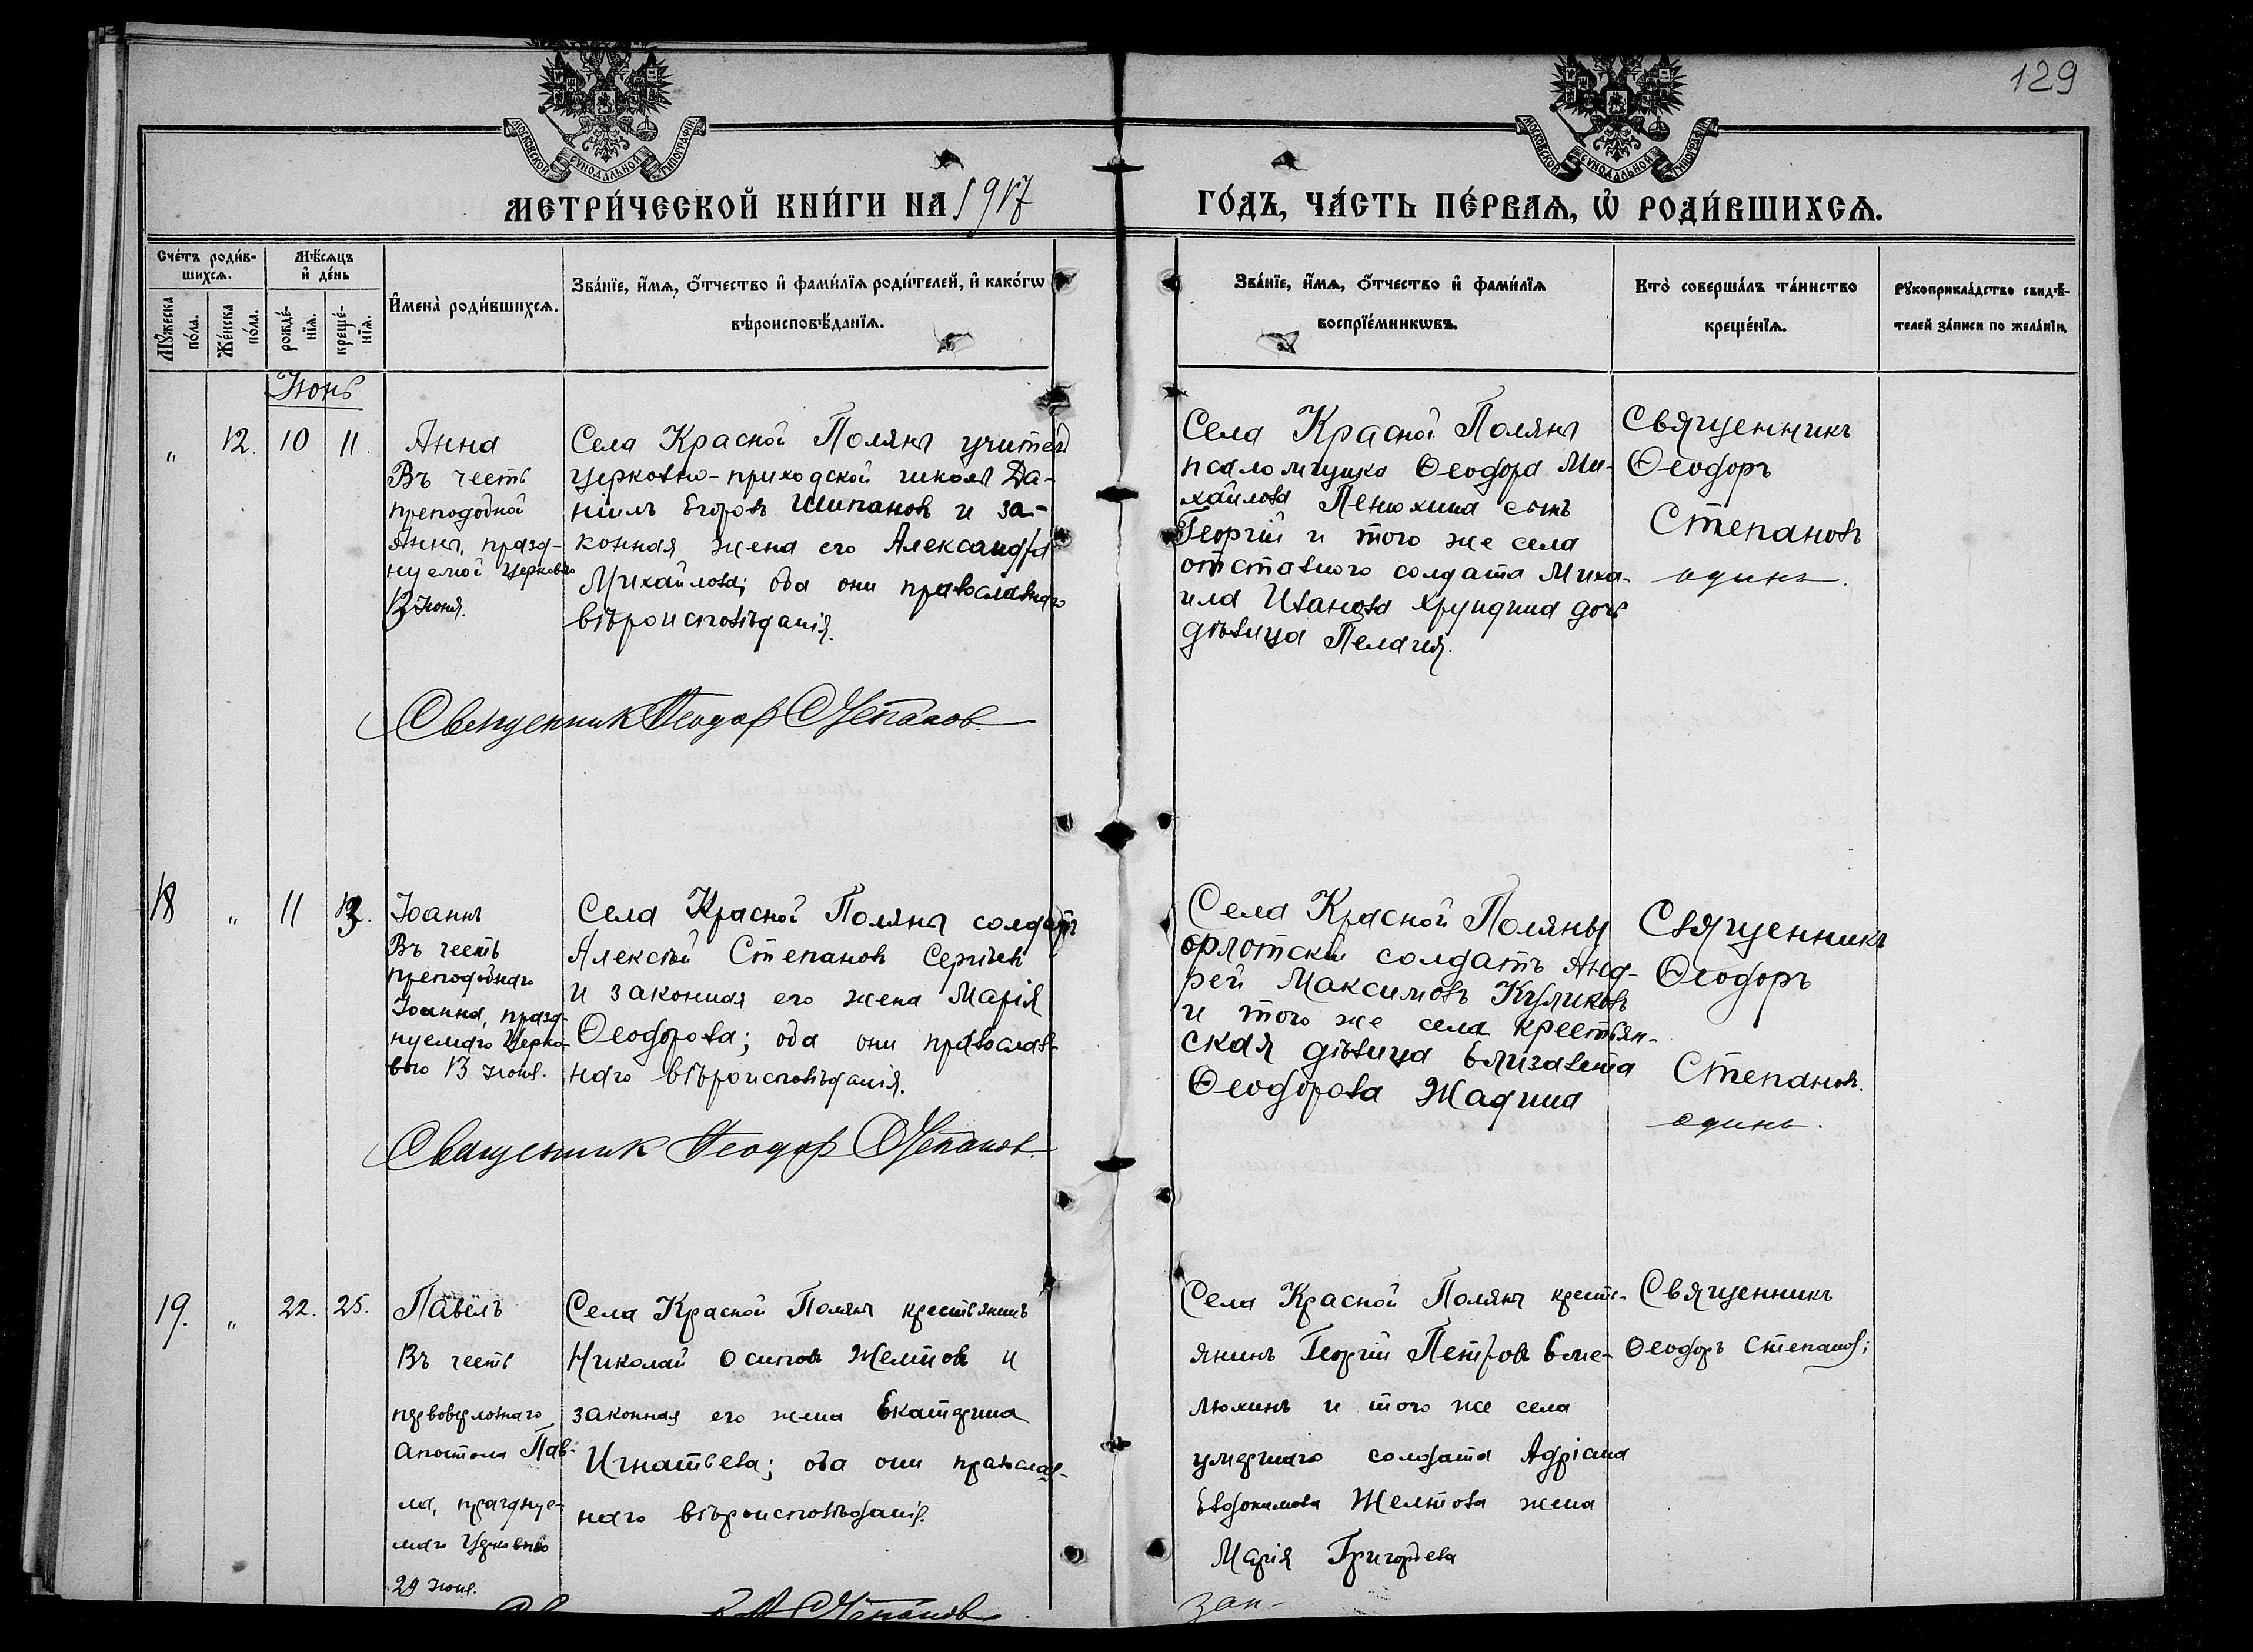 129
МОСКОВСКОЙ СѴНОДАЛЬНОЙ ТИПОГРАФІИ
МОСКОВСКОЙ СѴНОДАЛЬНОЙ ТИПОГРАФІИ
МЕТРИ́ЧЕСКОЙ КНИ́ГИ НА 1917
ГО́ДЪ, ЧА́СТЬ ПЕ́РВАѦ, Ѡ РОДИ́ВШИХСѦ.
Сче́тъ роди́в-
шихсѧ.
Мѣ́сѧцъ
и҆ де́нь
Мꙋ́жеска
по́ла.
Же́нска
по́ла.
рожде́-
нїѧ.
креще́-
нїѧ.
И҆мена̀ роди́вшихсѧ.
Зва́нїе, и҆́мѧ, ѻ҆́тчество и҆ фами́лїѧ роди́телей, и҆ како́гѡ
вѣроисповѣ́данїѧ.
Зва́нїе, и҆́мѧ, ѻ҆́тчество и҆ фами́лїѧ
воспрїе́мникѡвъ.
Кто̀ соверша́лъ та́инство
креще́нїѧ.
Рꙋкоприкла́дство свидѣ́-
телей за́писи по жела́нїю.
Июнь
" 12. 10 11.
Анна
Въ честь
преподобной
Анны, празд-
нуемой Церковью
13 июня.
Села Красной Поляны учитель
церковно-приходской школы Да-
ніилъ Егоровъ Шипановъ и за-
конная жена его Александра
Михайлова; оба они православнаго
вѣроисповѣданія.
Священник Феодор Степанов.
Села Красной Поляны
псаломщика Ѳеодора Ми-
хайлова Пенюхина сынъ
Георгій и того же села
отставного солдата Миха-
ила Иванова Хрундина дочь
дѣвица Пелагія.
Священникъ
Ѳеодоръ
Степановъ
одинъ.
18 " 11 13.
Іоаннъ
Въ честь
преподобнаго
Іоанна, празд-
нуемаго Церко-
вью 13 июня.
Села Красной Поляны солдатъ
Алексѣй Степановъ Сергѣевъ
и законная его жена Марія
Ѳеодорова; оба они православ-
наго вѣроисповѣданія.
Священник Феодор Степанов.
Села Красной Поляны
флотскій солдатъ Анд-
рей Максимовъ Куликовъ
и того же села крестьян-
ская дѣвица Елизавета
Ѳеодорова Жадина
Священникъ
Ѳеодоръ
Степановъ.
одинъ.
19. " 22. 25.
Павелъ
Въ честь
первоверховнаго
Апостола Пав-
ла, празднуе-
маго Церковью
29 июня.
Села Красной Поляны крестьянинъ
Николай Осиповъ Желтовъ и
законная его жена Екатерина
Игнатьева; оба они православ-
наго вѣроисповѣданія.
Степанов
Села Красной Поляны кресть-
янинъ Георгій Петровъ Еме-
люхинъ и того же села
умершаго солдата Адріана
Евдокимова Желтова жена
Марія Григорьева
Священникъ
Ѳеодоръ Степановъ;